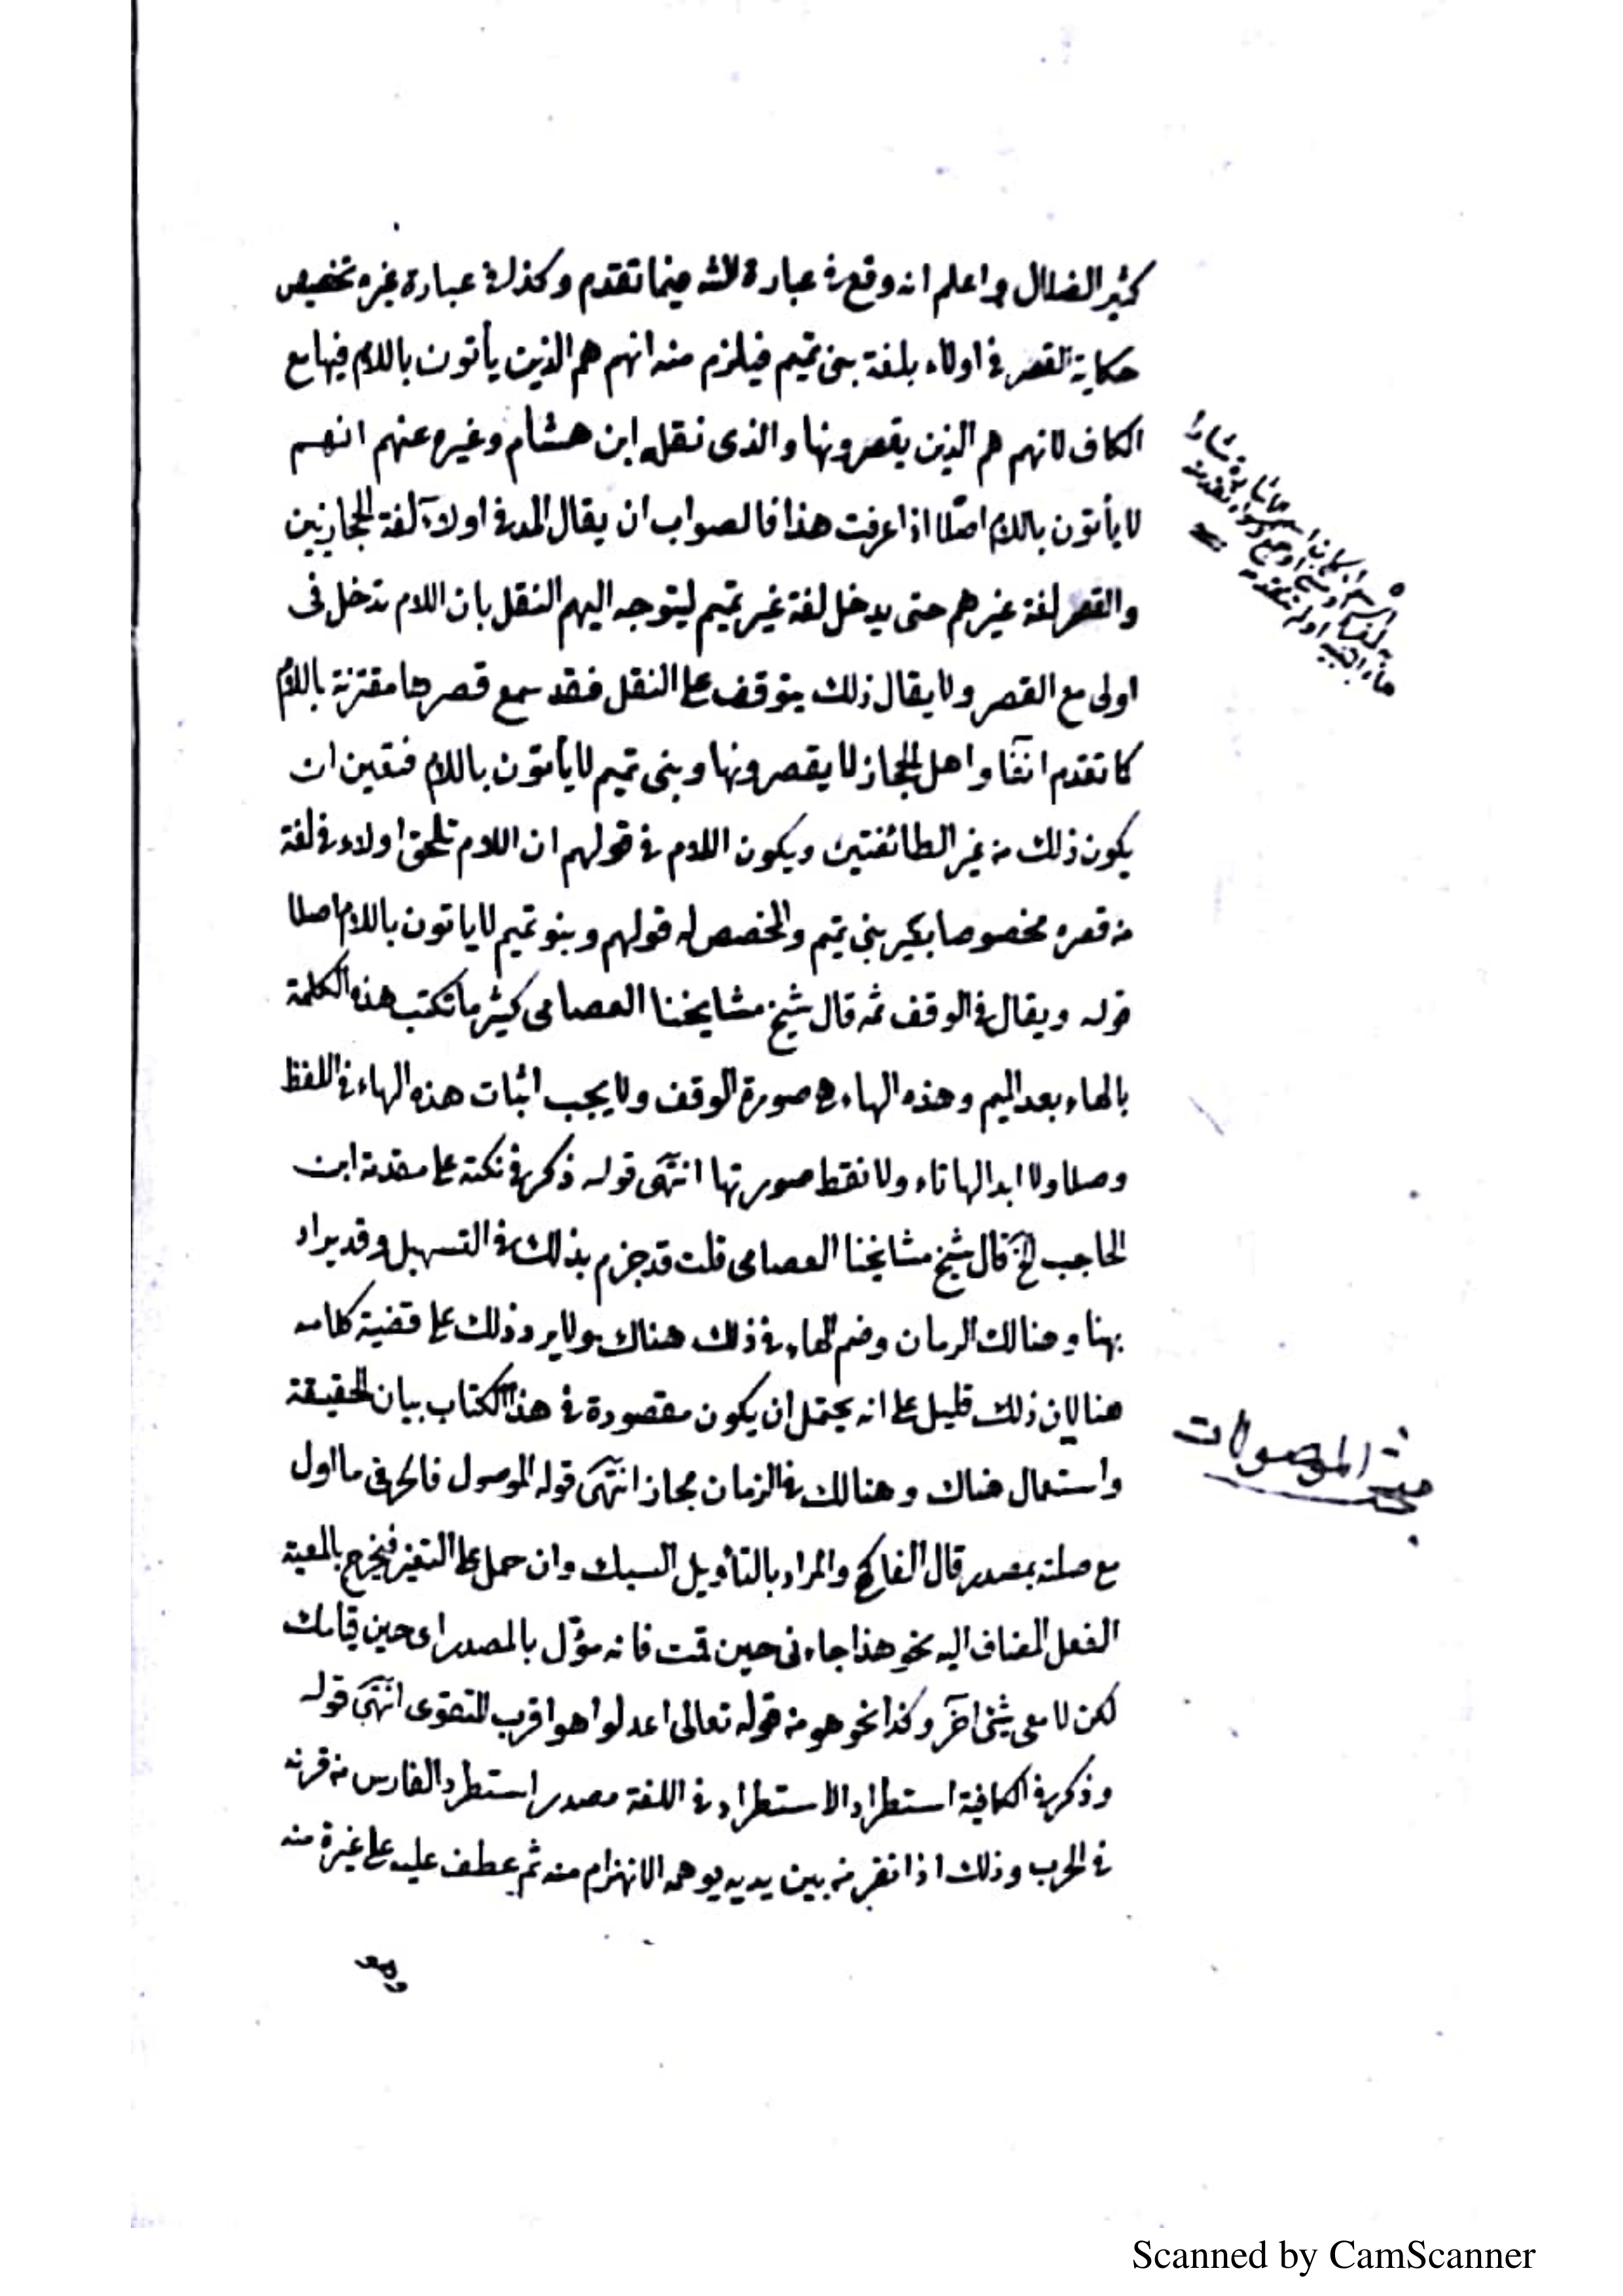 كثير الضلال واعلم انه وقع في عبارة فيما تقدم وكذلك في عبارة غيره تخصيص
حكاية القصر في اولاء بلغة بنى تميم فيلزم منه انهم هم الذين يأتون باللام فيها مع
الكاف لانهم هم الذين يقصرونها والذى نقله ابن هشام وغيره عنهم انهم
لا يأتون باللام اصلا اذا عرفت هذا فالصواب ان يقال المد في اولاء لغة الحجازيين
والقصر لغة غيرهم حتى يدخل لغة غير تميم ليتوجه اليهم النقل بان اللام تدخل فى
اولى مع القصر ولا يقال ذلك يتوقف على النقل فقد سمع قصرها مقترنة باللام
كما تقدم انفا واهل الحجاز لا يقصرونها وبنى تميم لا يأتون باللام فتعين ان
يكون ذلك من غير الطائفتين ويكون اللام في قولهم ان اللام تلحق اولاء في لغة
من قصره مخصوصا بغير بنى تميم والمخصص له قولهم وبنو تميم لا ياتون باللام اصلا
قوله ويقال في الوقف ثمه قال شيخ مشايخنا العصامى كثير ما تكتب هذه الكلمة
بالهاء بعد الميم وهذه الهاء صورة الوقف ولا يجب اثبات هذه الهاء في اللفظ
وصلا ولا ابدالها تاء ولا نقط صورتها انتهى قوله ذكره في نكته على مقدمة ابن
الحاجب الخ قال شيخ مشايخنا العصامى قلت قد جزم بذلك في التسهيل وقد يراد
بهنا وهنالك الزمان وضم الهاء في ذلك هناك ولا يرد ذلك على قضية كلامه
هنا لان ذلك قليل على انه يحتمل ان يكون مقصودة في هذا الكتاب بيان الحقيقة
واستعمال هناك وهنالك في الزمان مجاز انتهى قوله الموصول فالحرفى ما اول
مع صلته بمصدر قال الفاكهى والمراد بالتأويل السبك وان حمل على التفيز فيخرج بالمعية
الفعل المضاف اليه نحو هذا جاءنى حين قمت فانه مؤل بالمصدر اى حين قيامك
لكن لا مع شئ آخر وكذا نحو هو من قوله تعالى اعدلوا هو اقرب للتقوى انتهى قوله
وذكره في الكافية استطراد الاستطراد في اللغة مصدر استطرد الفارس من قرنه
في الحرب وذلك اذا نفر من بين يديه يوهمه الانهزام منه ثم عطف عليه على غيرة منه
مبحث الموصولات
Scanned by CamScanner